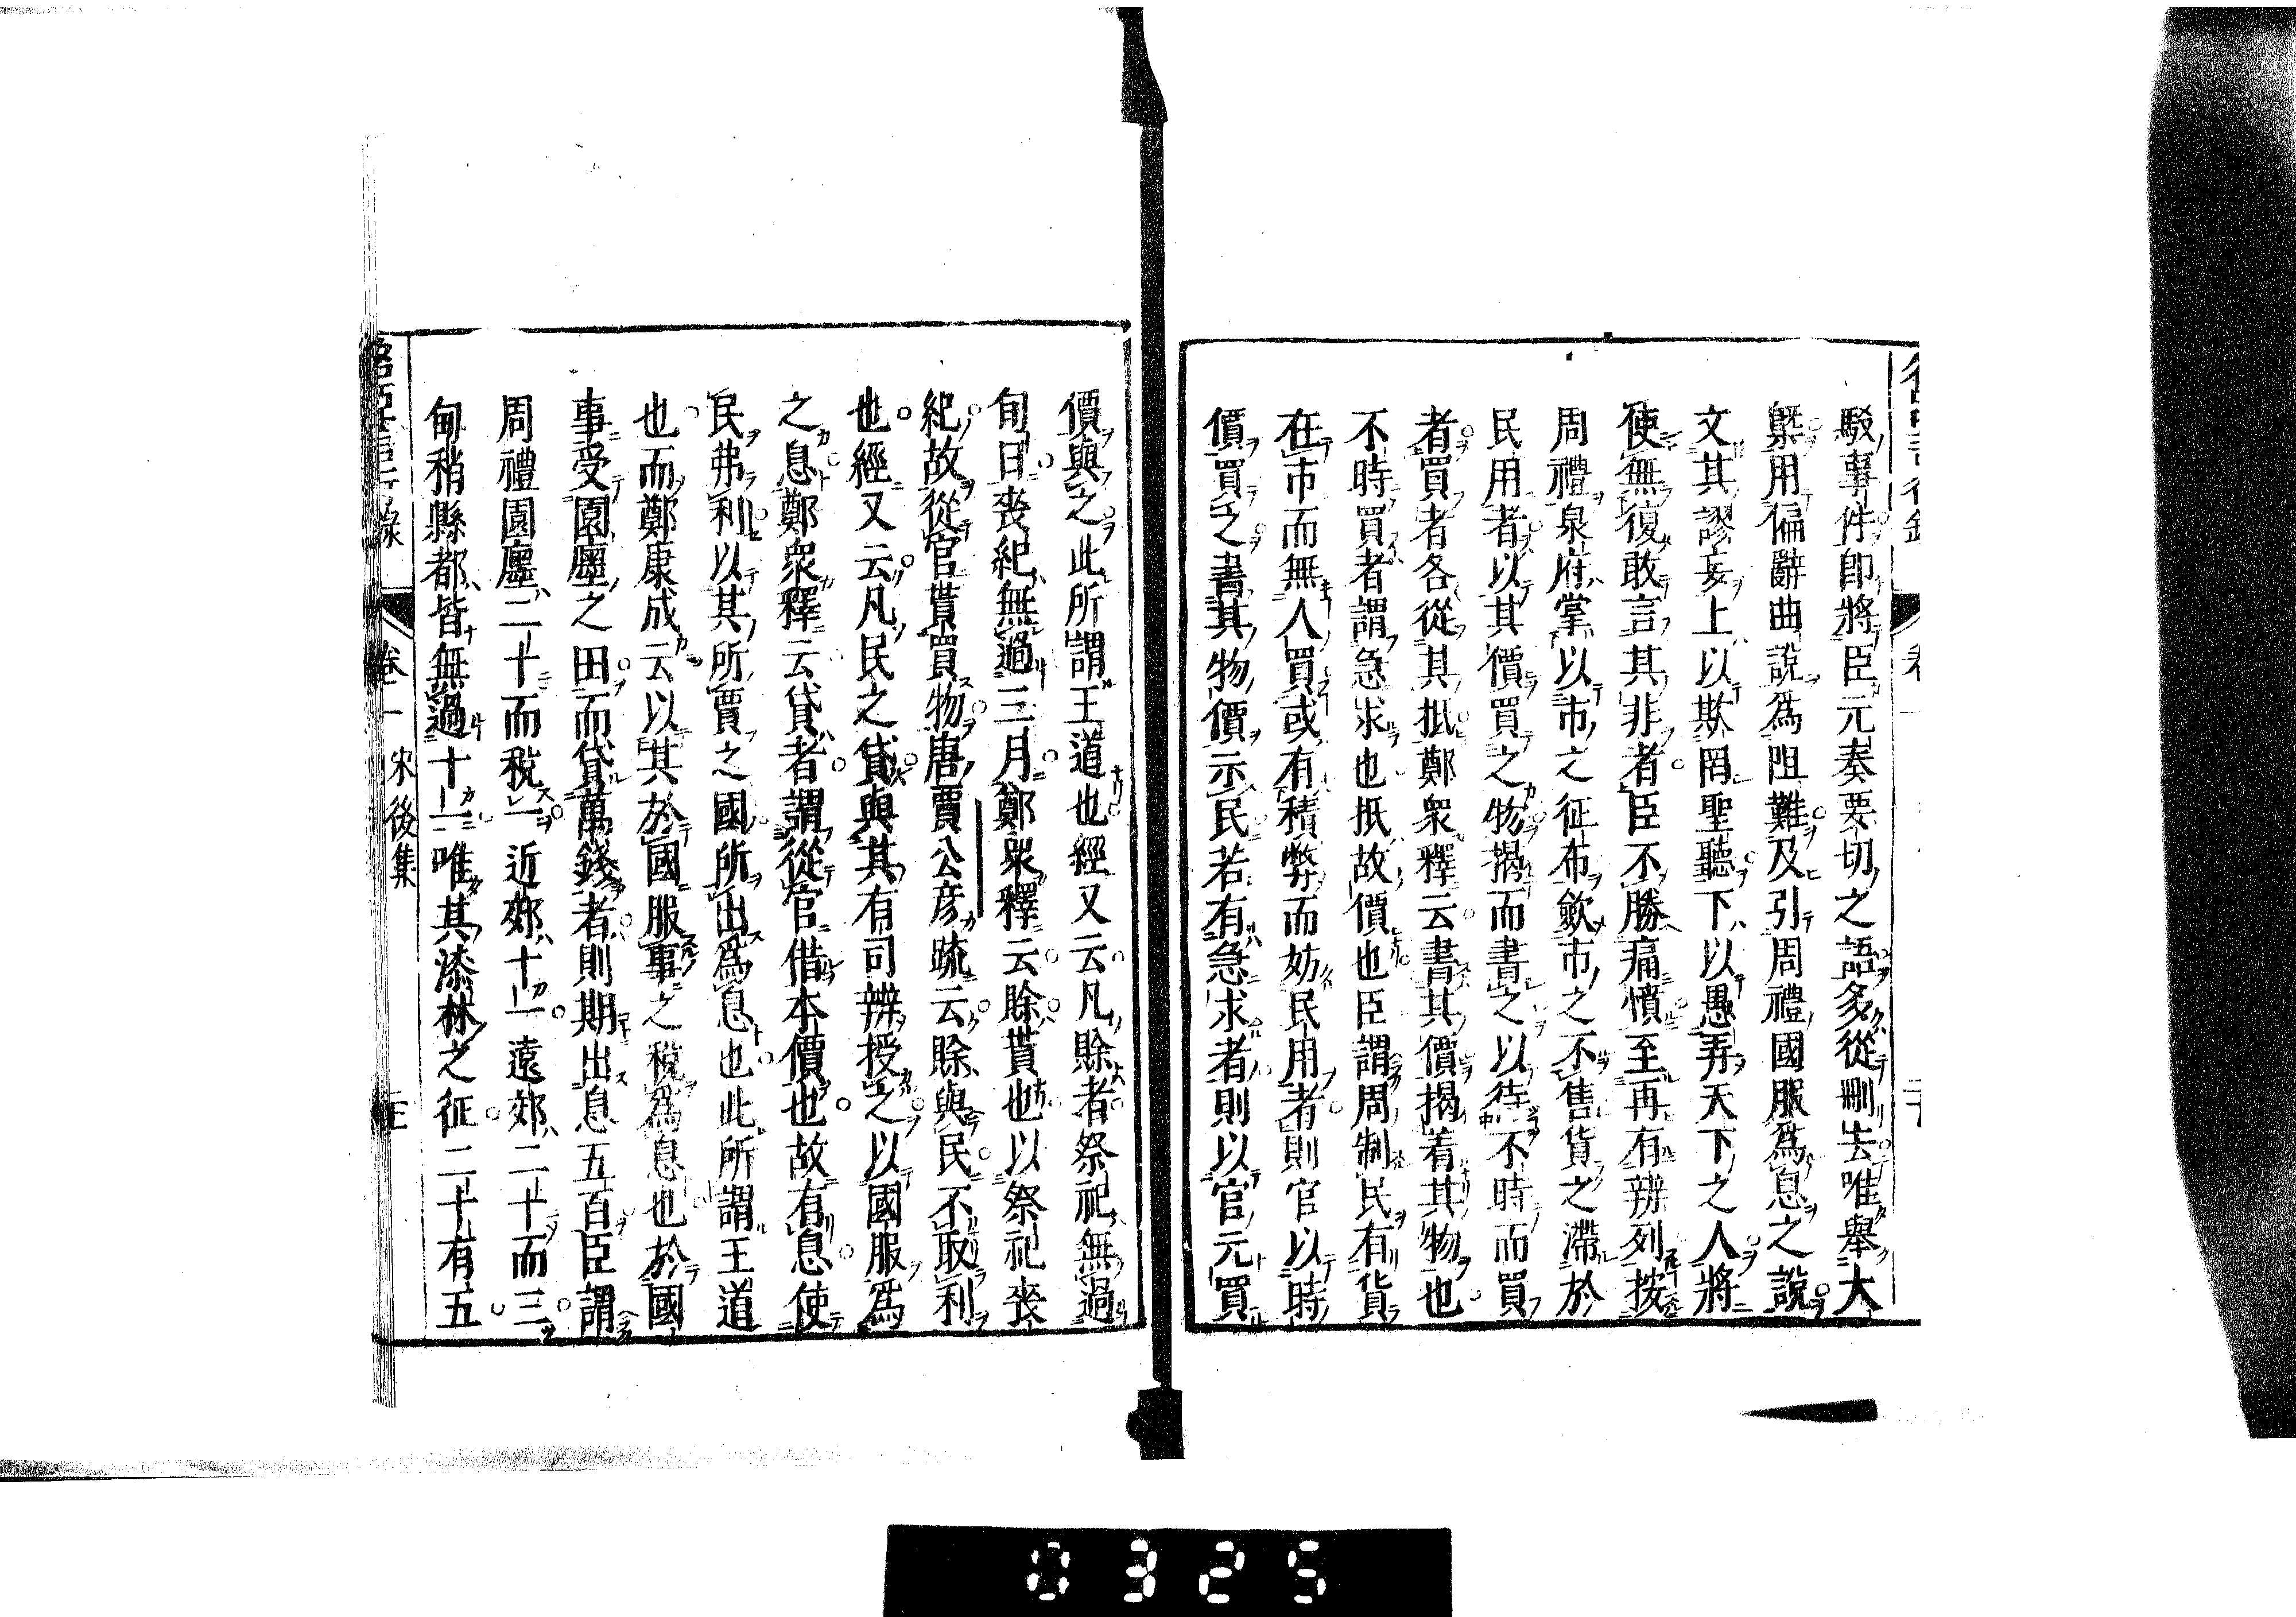 駁事件即將臣元奏要切之語多從刪去唯舉大
槩用偏辭曲說爲阻難及引周禮國服爲息之說
文其謬妄上以欺罔聖聽下以愚弄天下之人將
使無復敢言其非者臣不勝痛憤至再有辨列按
周禮泉府掌以市之征布斂市之不售貨之滯於
民用者以其價買之物揭而書之以待不時而買
者買者各從其抵鄭衆釋云書其價揭着其物也
不時買者謂急求也抵故價也臣謂周制民有貨
在市而無人買或有積弊而妨民用者則官以時
價買之書其物價示民若有急求者則以官元買
價與之此所謂王道也經又云凡賖者祭祀無過
旬日喪紀無過三月鄭衆釋云賖貰也以祭祀喪
紀故從官貰買物唐賈公彦疏云賖與民不取利
也經又云凡民之貸與其有司辨授之以國服爲
之息鄭衆釋云貸者謂從官借本價也故有息使
民弗利以其所賈之國所出爲息也此所謂王道
也而鄭康成云以其於國服事之稅爲息也於國
事受園廛之田而貸萬錢者則期出息五百臣謂
周禮園廛二十而稅一近郊十一遠郊二十而三
甸稍縣都皆無過十二唯其漆林之征二十有五
卷一 宋後集
0325